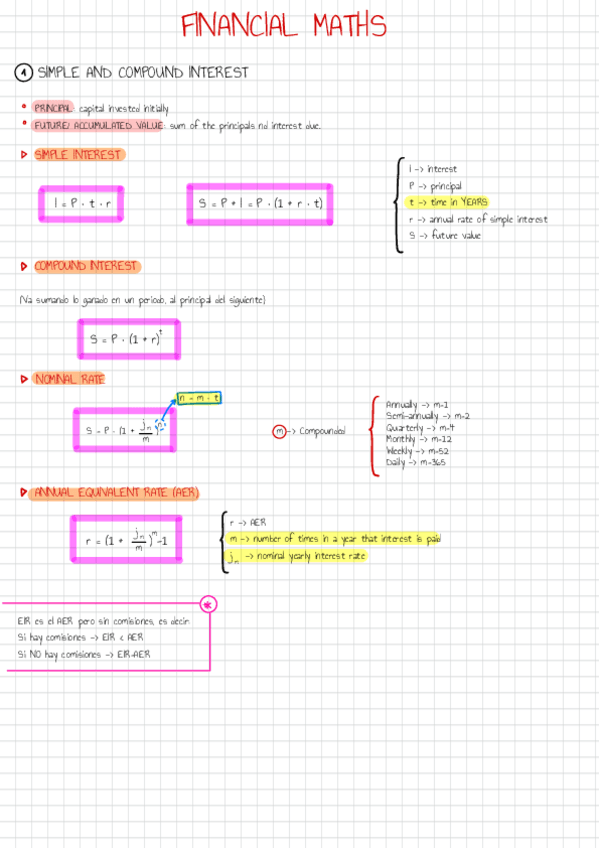 FINANCIAL MATHS
1 SIMPLE AND COMPOUND INTEREST
• PRINCIPAL: capital invested initially
• FUTURE/ ACCUMULATED VALUE: sum of the principals nd interest due.
▷ SIMPLE INTEREST
I = P · t · r
S = P + I = P · (1 + r · t)
I -> interest
P -> principal
t -> time in YEARS
r -> annual rate of simple interest
S -> future value
▷ COMPOUND INTEREST
(Va sumando lo ganado en un periodo, al principal del siguiente)
S = P · (1 + r)^t
▷ NOMINAL RATE
n = m · t
S = P · (1 + jₙ/m)^n
m -> Compounded
Annually -> m=1
Semi-annually -> m=2
Quarterly -> m=4
Monthly -> m=12
Weekly -> m=52
Daily -> m=365
▷ ANNUAL EQUIVALENT RATE (AER)
r = (1 + jₙ/m)^m -1
r -> AER
m -> number of times in a year that interest is paid
jₙ -> nominal yearly interest rate
*
EIR es el AER pero sin comisiones, es decir:
Si hay comisiones -> EIR < AER
Si NO hay comisiones -> EIR=AER